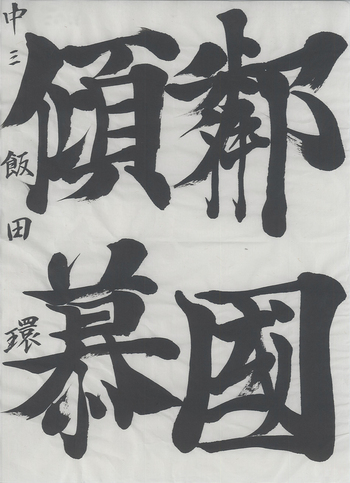 鄰國
傾慕
中三 飯田 環